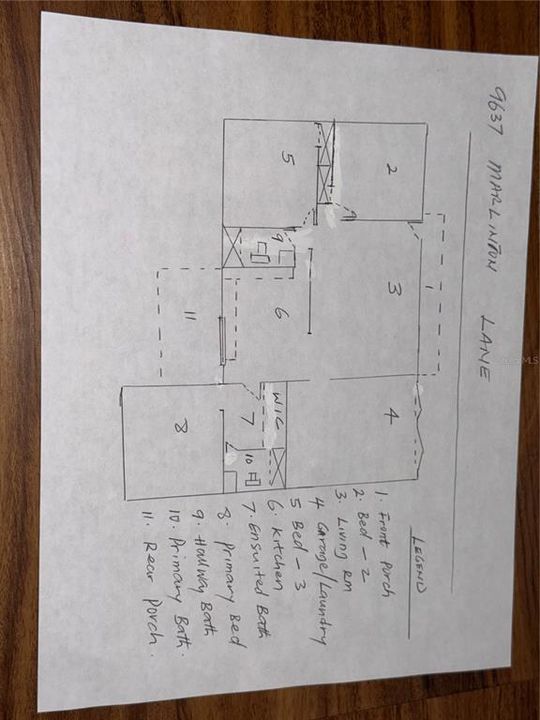 9637 MARLINTON LANE
1
2
3
4
5
9
6
11
WIC
7
10
8
LEGEND
1. Front Porch
2. Bed - 2
3. Living RM
4 Garage/Laundry
5 Bed - 3
6. Kitchen
7. Ensuited Bath
8. Primary Bed
9. Hallway Bath
10. Primary Bath.
11. Rear Porch.